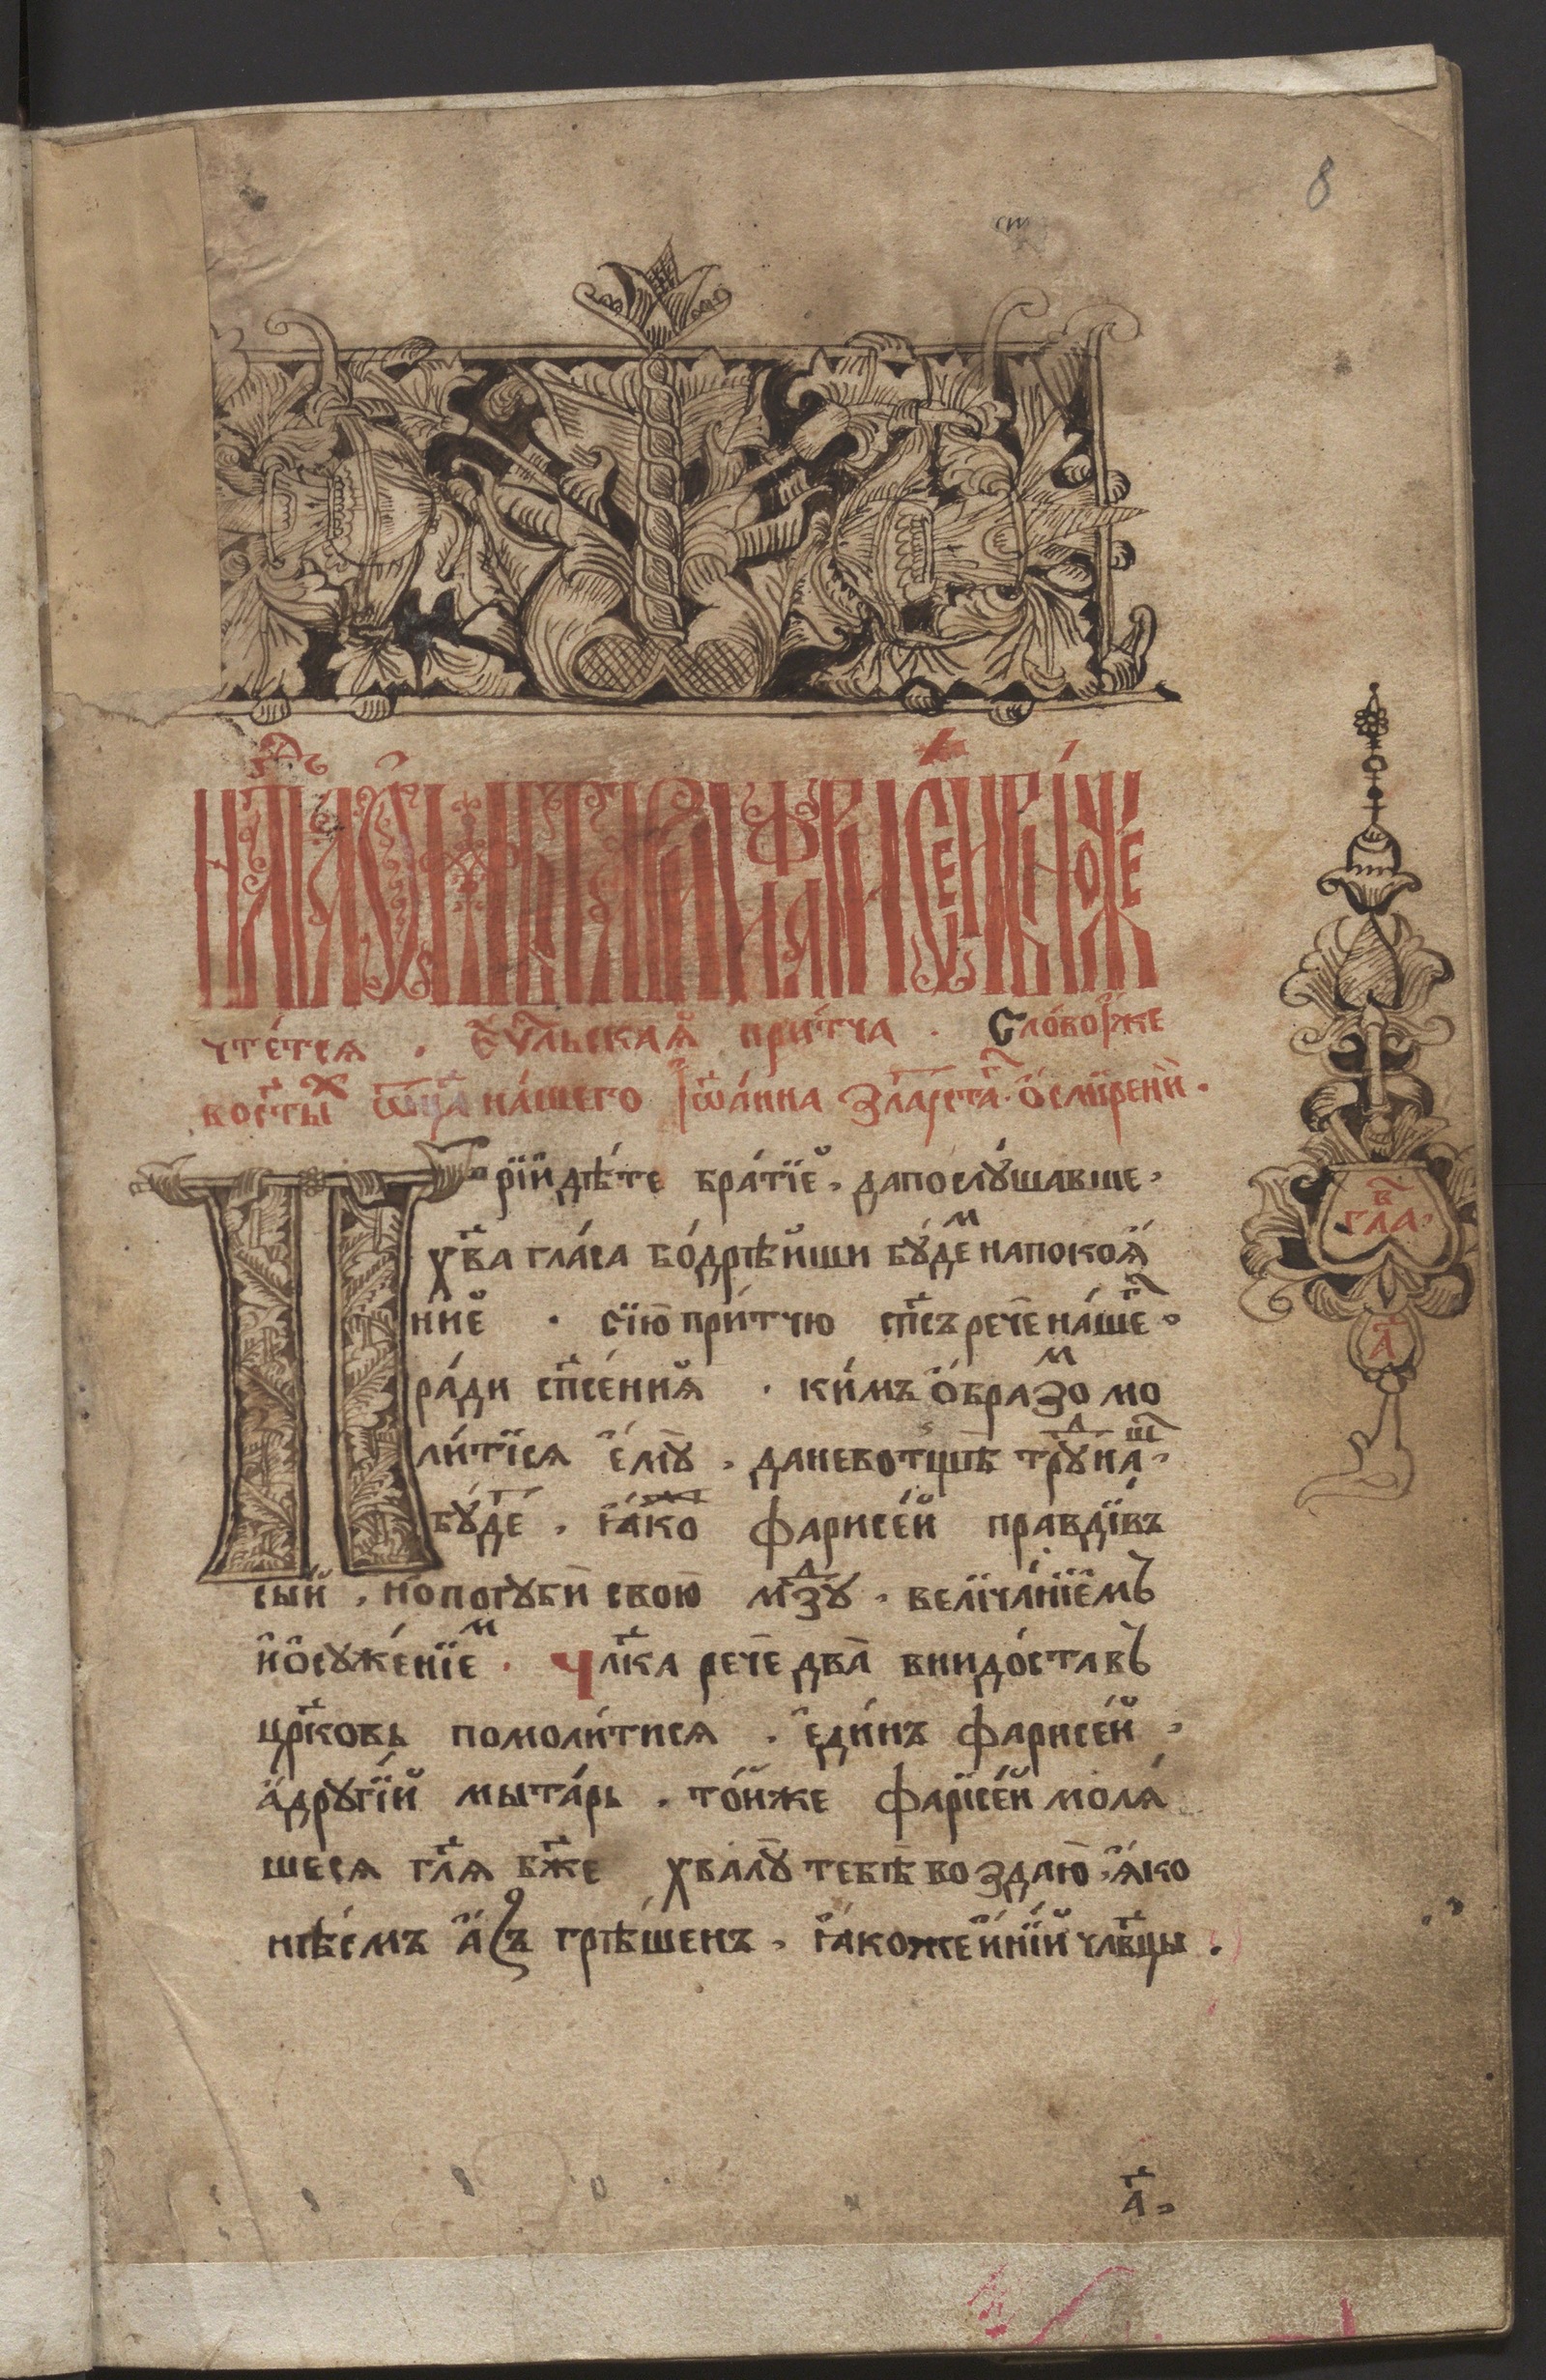 8
чте́тсѧ . Е҆ѵⷢ҇льскаѧ при́тча . Сло́во и҆́же
во ст҃ы́ⷯ ѿц҃а на́шего І҆ѡа́нна златоⷭ҇таⷢ҇ ѡ҆ смире́нїи .
Прїидѣ́те бра́тїе , да послꙋ́шавше ,
хⷭ҇ва гла́са бо́дрѣйши бꙋ́деⷨ на покоѧ́
ние . сїю̀ при́тчю сп҃съ речѐ на́шеⷢ҇ ,
ра́ди сп҃се́ниѧ . ки́мъ ѻ҆́бразоⷨ мо
ли́тисѧ є҆мꙋ̀ . да не вотщѣ̀ трꙋⷣ на́ш ,
бꙋ́деⷮ . ꙗ҆́ко фарисе́й правди́въ
сы́й , но погꙋбѝ свою̀ мзⷣꙋ̀ . велича́нїемъ
и҆ ѻ҆сꙋже́нїеⷨ . Чл҃ка речѐ два̀ внидо́ста въ
цр҃ковь помоли́тисѧ . є҆ди́нъ фарисе́й ,
а҆ дрꙋгі́й мыта́рь . то́йже фарисе́й молѧ́
шесѧ гл҃ѧ бж҃е хвалꙋ̀ тебѣ̀ воздаю̀ , ꙗ҆́ко
нѣ́смъ а҆́зъ грѣ́шенъ . ꙗ҆́коже и҆ні́й члв҃цы .
в҃
гла ,
а҃
а҃ ,